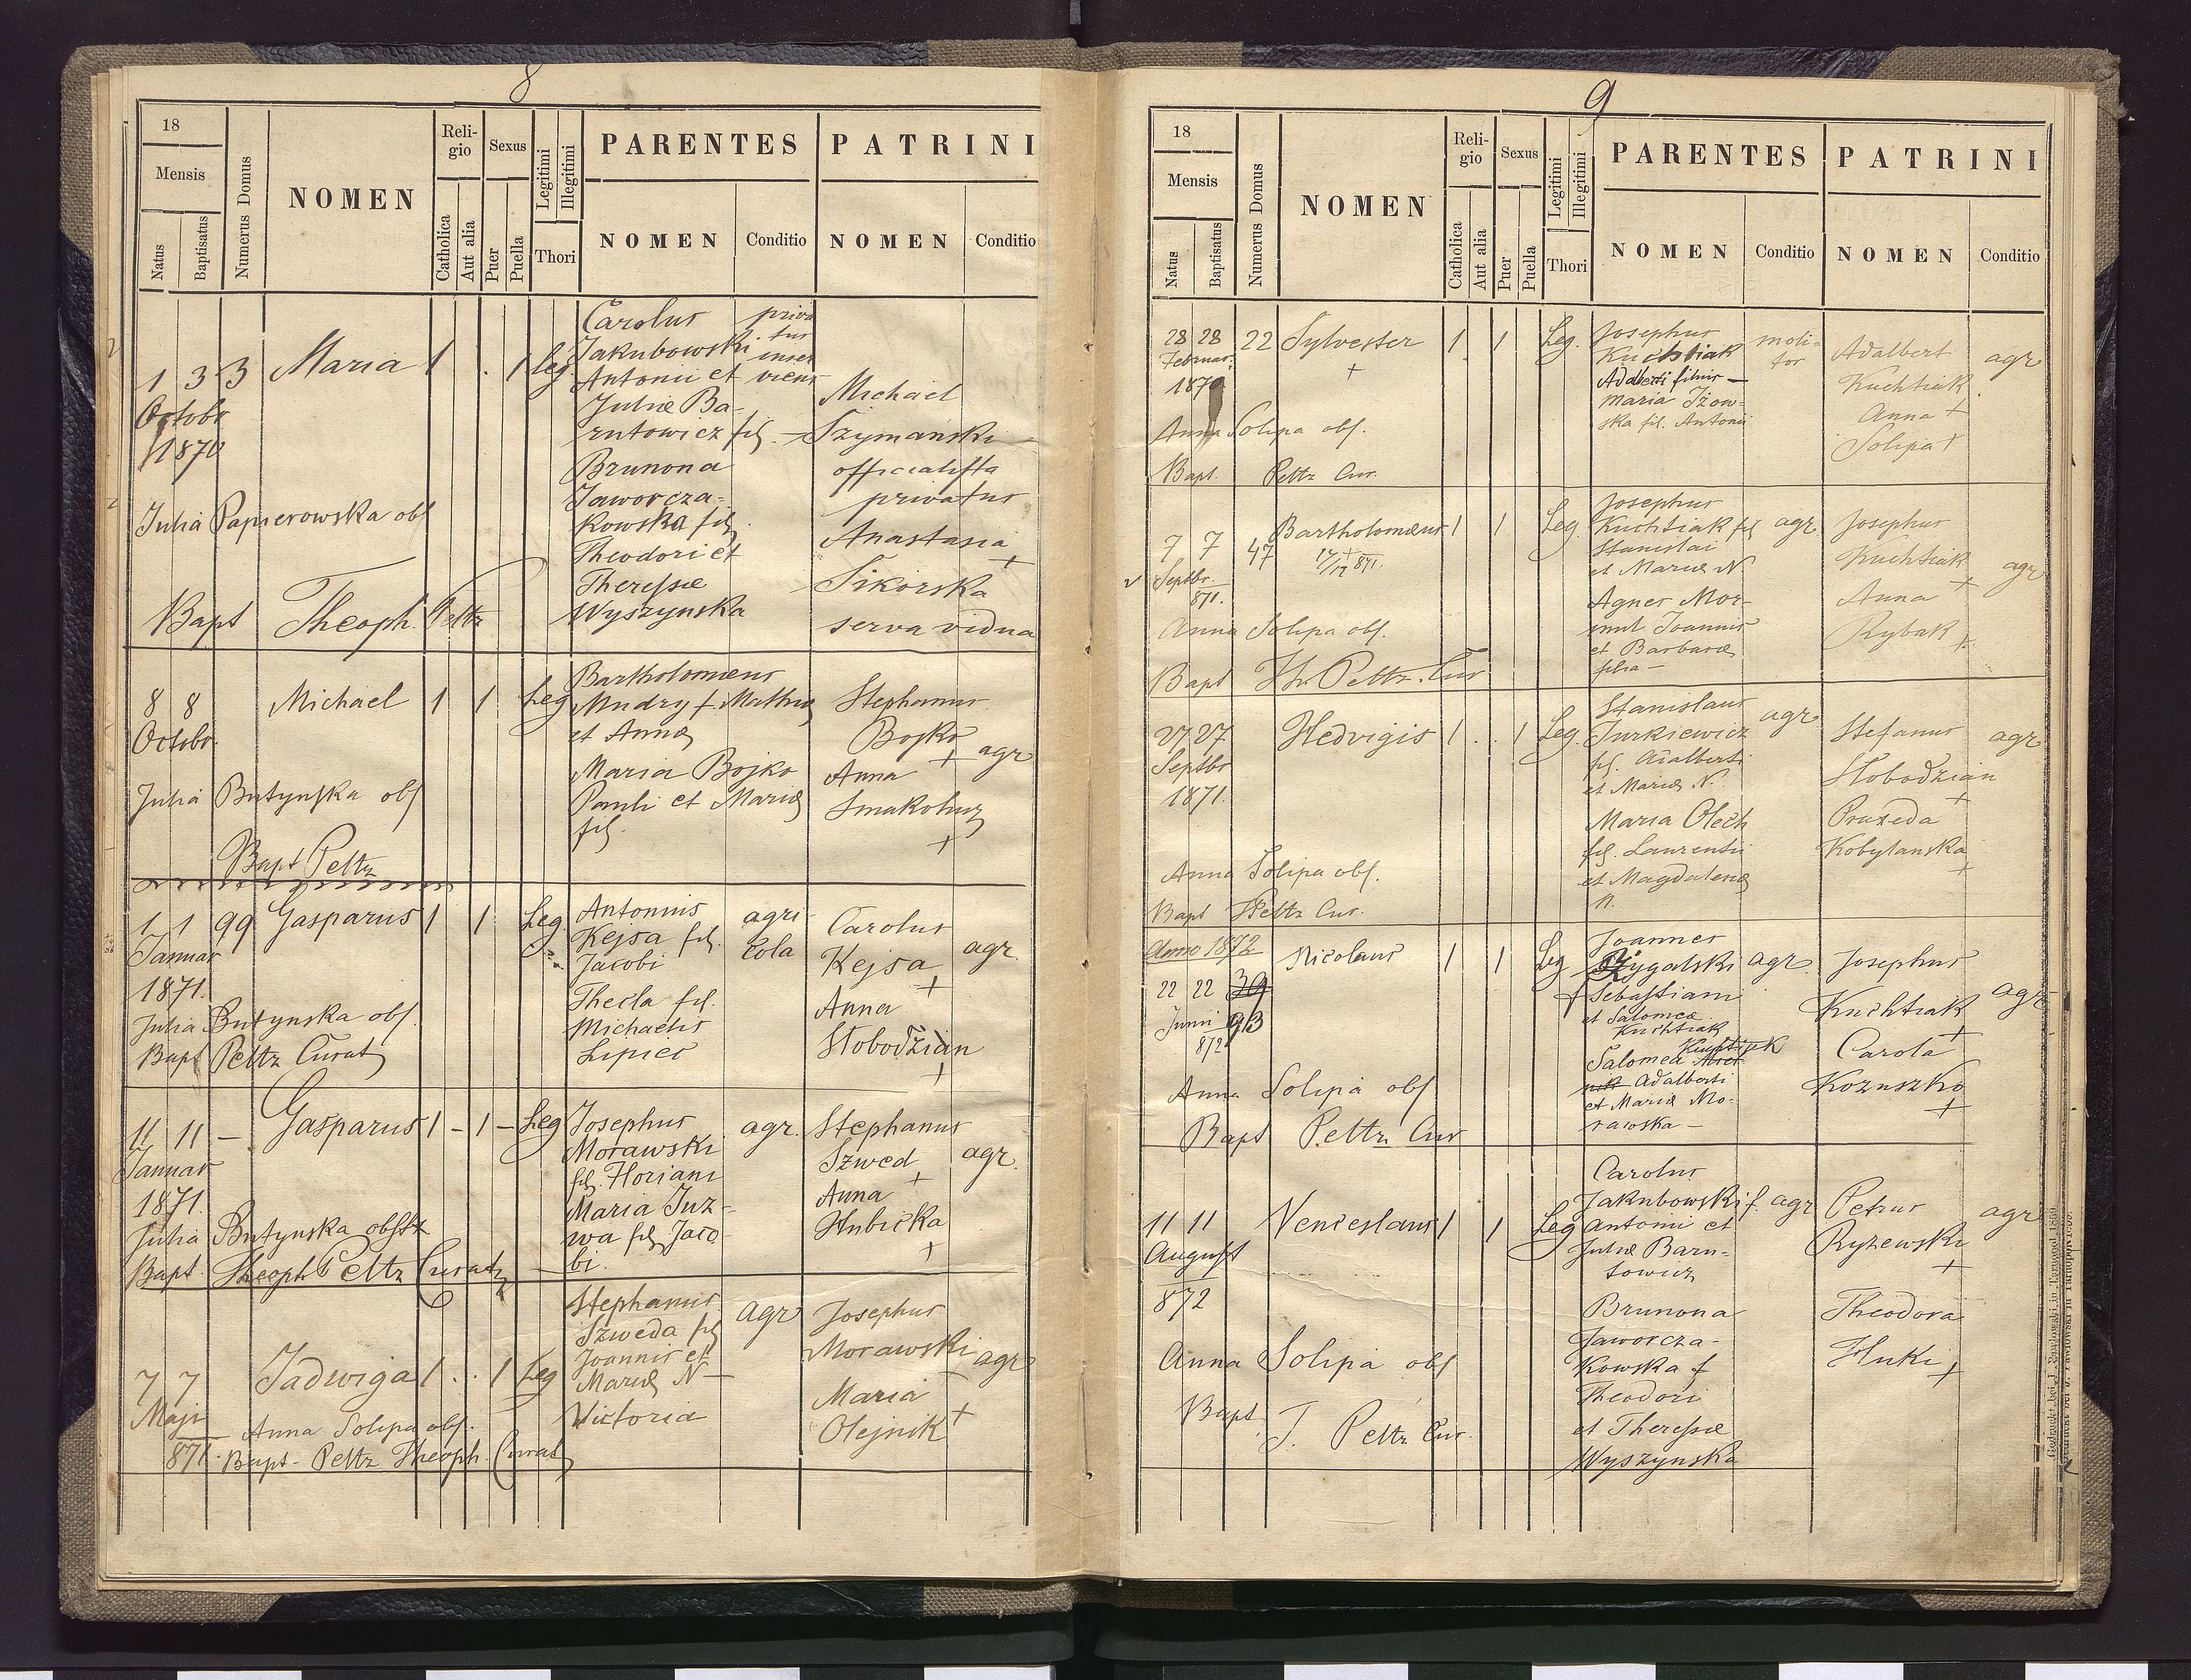 8
18
Mensis
Natus
Baptisatus
Numerus Domus
NOMEN
Religio
Catholica
Aut alia
Sexus
Puer
Puella
Legitimi
Illegitimi
Thori
PARENTES
NOMEN
Conditio
PATRINI
NOMEN
Conditio
1 3 3 Maria 1 . 1 leg.
Octobr
1870
Julia Papierowska obs
Bapt Theoph. Peltz
Carolus
Jakubowski
Antonii et
Juliæ Ba-
rutowicz fil.
Brunona
Jaworcza-
kowska fil.
Theodori et
Theressæ
Wyszynska
priva
tus
inser
viens
Michael
Szymanski
officialista
privatus
Anastasia
+
Sikorska
serva vidua
8 8 Michael 1 1 Leg
Octobr.
Julia Butynska obs
Bapt Peltz
Bartholomeus
Mudry f. Mathiæ
et Annæ
Maria Bojko
Pauli et Mariæ
fil.
Stephanus
Bojko
+ agr
Anna
Smakoluz
+
1 1 99 Gasparus 1 1 Leg.
Januar
1871.
Julia Butynska obs.
Bapt Peltz Curat
Antonius
Kejsa fil.
Jacobi
Thecla fil.
Michaelis
Lipiec
agri-
cola
Carolus
Kejsa
+
Anna
Slobodzian
+
agr.
11 11 - Gasparus 1 - 1 - Leg
Januar
1871.
Julia Butynska obstx
Bapt Theoph Peltz Curat
Josephus
Morawski
fil. Floriani
Maria Juz-
wa fil. Jaco-
bi.
agr.
Stephanus
Szwed
+
Anna
Hubicka
+
agr.
7 7 Jadwiga 1 . . 1 Leg
Maji
871.
Anna Solipa obs.
Bapt- Peltz Theoph. Curat
Stephanus
Szweda fil
Joannis et
Mariæ N -
Victoria
agr
Josephus
Morawski
Maria
+
Olejnik
agr
9
18
Mensis
Natus
Baptisatus
Numerus Domus
NOMEN
Religio
Catholica
Aut alia
Sexus
Puer
Puella
Legitimi
Illegitimi
Thori
PARENTES
NOMEN
Conditio
PATRINI
NOMEN
Conditio
28 28 22 Sylvester 1 1 Leg.
Februar.
+
Anna Solipa obs.
Bapt. Peltz Cur.
Josephus
Kuchtiak
Adalberti filius -
Maria Iżow-
ska fil. Antonii
moli-
tor
Adalbert
Kuchtiak
Anna +
Solipa +
agr
7 7 47 Bartholomeus 1 1 Leg
Septbr
871.
Anna Solipa obs.
Bapt Th. Peltz. Cur
Josephus
Kuchtiak fil
Stanislai
et Mariæ N.
Agnes Mor-
mul Joannis
et Barbaræ
filia -
agr.
Josephus
Kuchtiak
+
Anna
Rybak
+
agr
27 27 Hedvigis 1 . . 1 Leg.
Septbr
1871.
Anna Solipa obs.
Bapt Peltz Cur.
Stanislaus
Jurkiewicz
fil. Adalberti
et Mariæ N.
Maria Olech
fil. Laurentii
et Magdalenæ
N.
agr
Stefanus
Slobodzian
+
Praxeda
Kobylanska
+
agr
Anno 1872
22 22 39 Nicolaus 1 1 Leg
Junii 93
872
Anna Solipa obs
Bapt Peltz Cur
Joannes
Rygalski
f Sebastiani
et Salomea
Kuchtiak
Kuchtiak
Salomea
Adalberti
et Mariæ Mo-
rawska -
agr.
Josephus
Kuchtiak
+
Carola
Kozuszko
+
agr
11 11 Venceslaus 1 1 Leg
August
872
Anna Solipa obs
Bapt T. Peltz Cur.
Carolus
Jakubowski f.
Antonii et
Juliæ Baru-
towicz
Brunona
Jaworcza-
kowska f
Theodori
et Theressæ
Wyszynska
agr
Petrus
Ryzewski
+
Theodora
Huki
+
agr